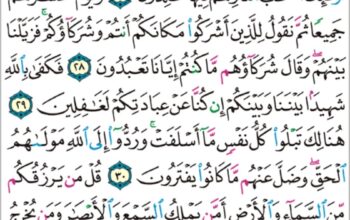 جَمِيعًا ثُمَّ نَقُولُ لِلَّذِينَ أَشْرَكُوا۟ مَكَانَكُمْ أَنتُمْ وَشُرَكَآؤُكُمْ ۚ فَزَيَّلْنَا
بَيْنَهُمْ ۖ وَقَالَ شُرَكَآؤُهُم مَّا كُنتُمْ إِيَّانَا تَعْبُدُونَ ٢٨ فَكَفَىٰ بِٱللَّهِ
شَهِيدًۢا بَيْنَنَا وَبَيْنَكُمْ إِن كُنَّا عَنْ عِبَادَتِكُمْ لَغَٰفِلِينَ ٢٩
هُنَالِكَ تَبْلُوا۟ كُلُّ نَفْسٍ مَّآ أَسْلَفَتْ ۚ وَرُدُّوٓا۟ إِلَى ٱللَّهِ مَوْلَىٰهُمُ
ٱلْحَقِّ ۖ وَضَلَّ عَنْهُم مَّا كَانُوا۟ يَفْتَرُونَ ٣٠ قُلْ مَن يَرْزُقُكُم
مِّنَ ٱلسَّمَآءِ وَٱلْأَرْضِ أَمَّن يَمْلِكُ ٱلسَّمْعَ وَٱلْأَبْصَٰرَ وَمَن يُخْرِجُ